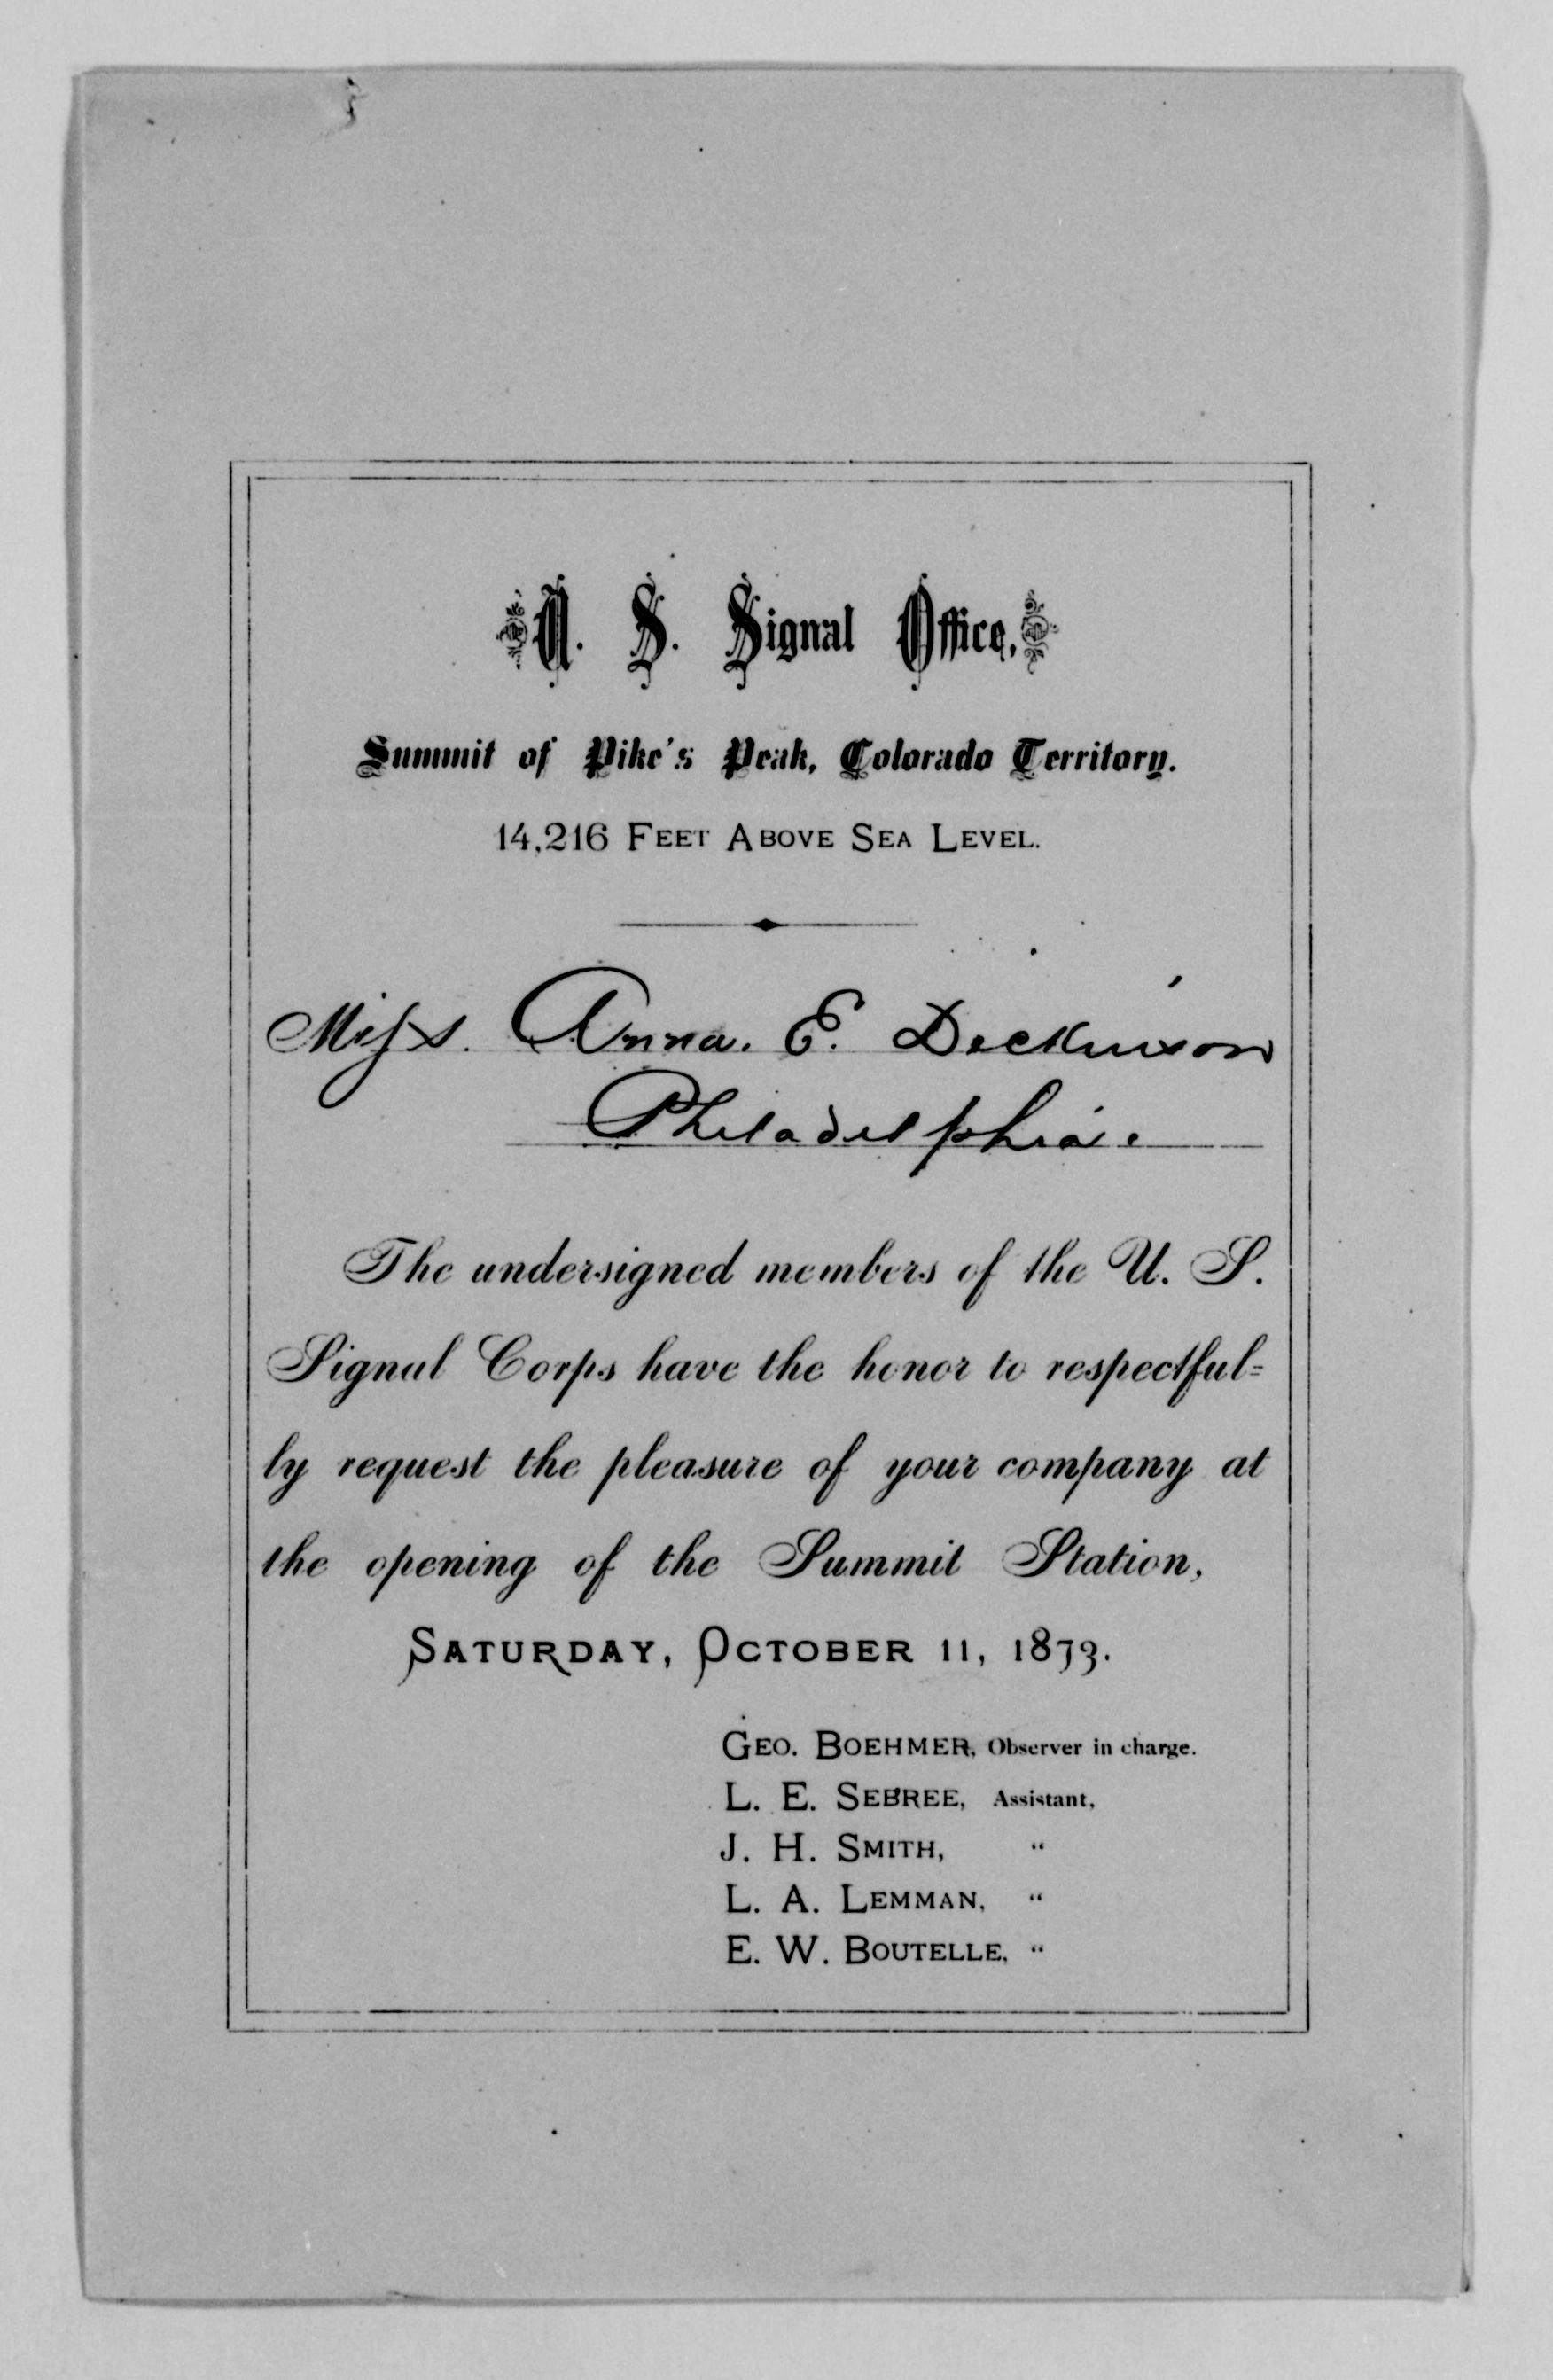 U. S. Signal Office,
Summit of Pike's Peak, Colorado Territory.
14,216 FEET ABOVE SEA LEVEL.
Miss. Anna. E. Dickinson
Philadelphia.
The undersigned members of the U. S.
Signal Corps have the honor to respectful=
ly request the pleasure of your company at
the opening of the Summit Station,
SATURDAY, OCTOBER 11, 1873.
GEO. BOEHMER, Observer in charge.
L. E. SEBREE, Assistant,
J. H. SMITH, "
L. A. LEMMAN, "
E. W. BOUTELLE, "